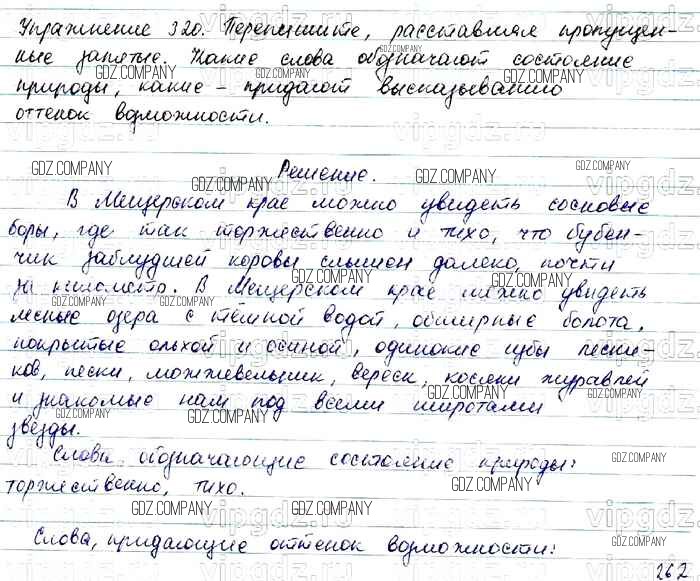 Упражнение 320. Перепишите, расставляя пропущен-
ные запятые. Какие слова обозначают состояние
природы, какие - придают высказыванию
оттенок возможности.
Решение.
В Мещерском крае можно увидеть сосновые
боры, где так торжественно и тихо, что бубен-
чик заблудшей коровы слышен далеко, почти
за километр. В Мещерском крае можно увидеть
лесные озера с тёмной водой, обширные болота,
покрытые ольхой и осиной, одинокие избы лесни-
ков, пески, можжевельник, вереск, косяки журавлей
и знакомые нам под всеми широтами
звезды.
Слова, обозначающие состояние природы:
торжественно, тихо.
Слова, придающие оттенок возможности:
262
GDZ.COMPANY
vipgdz.ru